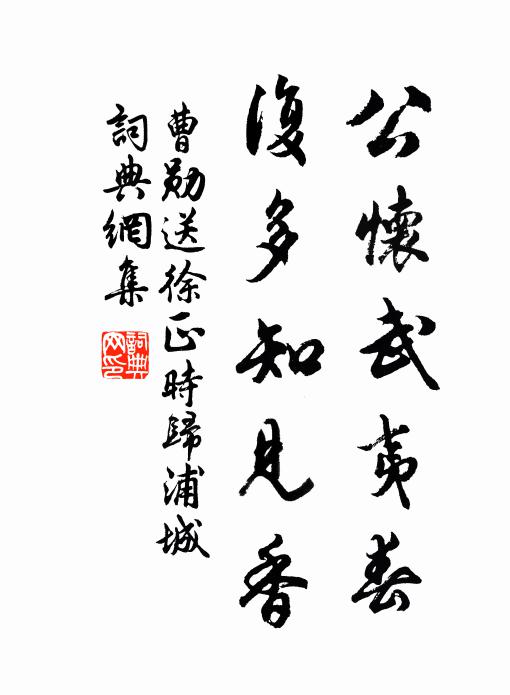 公懷武夷春
復多知見香
曹勛送徐正時歸浦城
詞典網集
詞典
网印